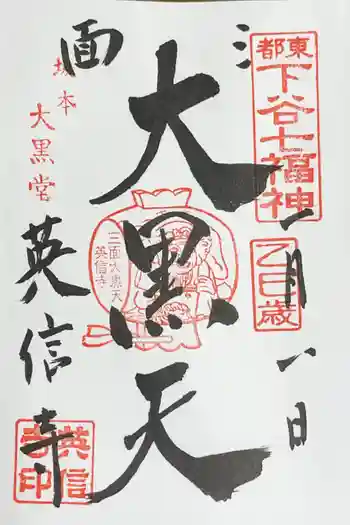 東都
下谷七福神
乙巳歳
一月一日
大黒天
三面大黒天
英信寺
面
坂本
大黒堂
英信寺
英信寺印